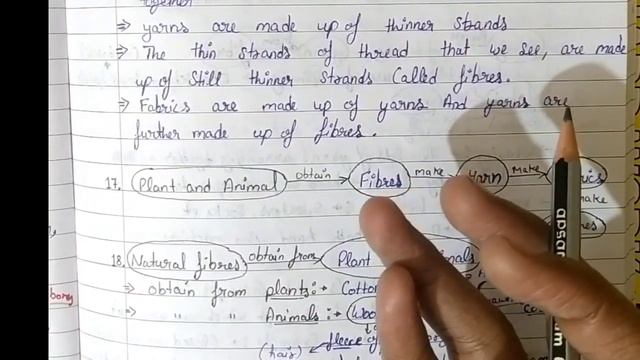 together
⇒ yarns are made up of thinner strands
⇒ The thin strands of thread that we see, are made
up of still thinner strands Called fibres.
⇒ Fabrics are made up of yarns And yarns are
further made up of fibres.
17. Plant and Animal obtain → Fibres make → Yarn make →
make
18. Natural fibres obtain from Plant
⇒ obtain from plants:→
⇒ " " Animals:→
fleece
(hair)
apsara